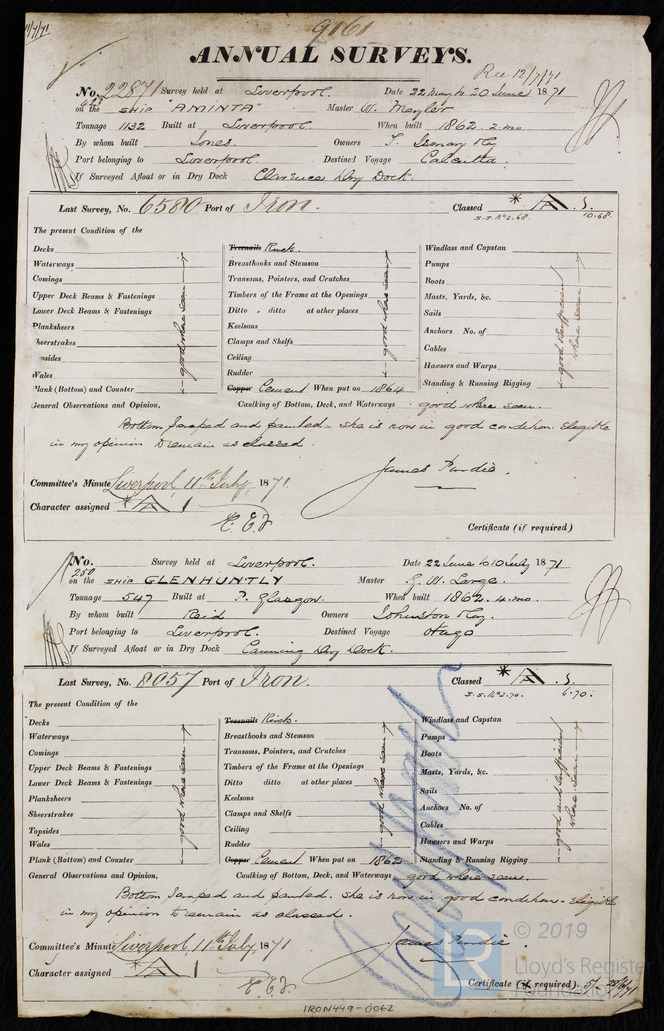 11/7/71
9161
ANNUAL SURVEYS.
Rec 12/7/71
No. 22871 Survey held at Liverpool. Date 22 May to 20 June 1871
on the SHIP "AMINTA" Master W. Meyler
Tonnage 1132 Built at Liverpool. When built 1862. 2. mo
By whom built Jones. Owners
Port belonging to Liverpool Destined Voyage Calcutta.
If Surveyed Afloat or in Dry Dock Clarence Dry Dock.
Last Survey, No. 6580 Port of Iron. Classed * A 1.
S.S. No 2. 68. 10.68.
The present Condition of the
Decks Treenails Rivets. Windlass and Capstan
Waterways Breasthooks and Stemson Pumps
Comings Transoms, Pointers, and Crutches Boats
Upper Deck Beams & Fastenings Timbers of the Frame at the Openings Masts, Yards, &c.
Lower Deck Beams & Fastenings Ditto ditto at other places Sails
Planksheers Keelsons Anchors No. of
heerstrakes Clamps and Shelfs Cables
opsides Ceiling Hawsers and Warps
Wales Rudder Standing & Running Rigging
Plank (Bottom) and Counter Copper Cement When put on 1864
good where seen
good where seen
good & sufficient where seen
General Observations and Opinion, Caulking of Bottom, Deck, and Waterways good where seen.
Bottom scraped and painted. She is now in good condition. Eligible
in my opinion to remain as classed.
James Pardie.
Committee's Minute Liverpool, 11th July, 1871.
Character assigned * A 1
Certificate (if required)
No. Survey held at Liverpool. Date 22 June to 10 July 1871
250
on the SHIP GLENHUNTLY Master G. W. Large.
Tonnage 547 Built at P. Glasgow. When built 1862. 4. mo.
By whom built Reid Owners Johnston &Co.
Port belonging to Liverpool. Destined Voyage Otago
If Surveyed Afloat or in Dry Dock Canning Dry Dock.
Last Survey, No. 8057 Port of Iron. Classed * A 1.
S.S. No 2. 70. 6.70.
The present Condition of the
Decks Treenails Rivets. Windlass and Capstan
Waterways Breasthooks and Stemson Pumps
Comings Transoms, Pointers, and Crutches Boats
Upper Deck Beams & Fastenings Timbers of the Frame at the Openings Masts, Yards, &c.
Lower Deck Beams & Fastenings Ditto ditto at other places Sails
Planksheers Keelsons Anchors No. of
Sheerstrakes Clamps and Shelfs Cables
Topsides Ceiling Hawsers and Warps
Wales Rudder Standing & Running Rigging
Plank (Bottom) and Counter Copper Cement When put on 1862
good where seen
good where seen
good and sufficient where seen
General Observations and Opinion, Caulking of Bottom, Deck, and Waterways good where seen.
Bottom scraped and painted. She is now in good condition. Eligible
in my opinion to remain as classed.
James Pardie.
Committee's Minute Liverpool, 11th July, 1871
Character assigned * A 1
Certificate (if required).
© 2019
Lloyd's Register
Foundation
IRON449-0062